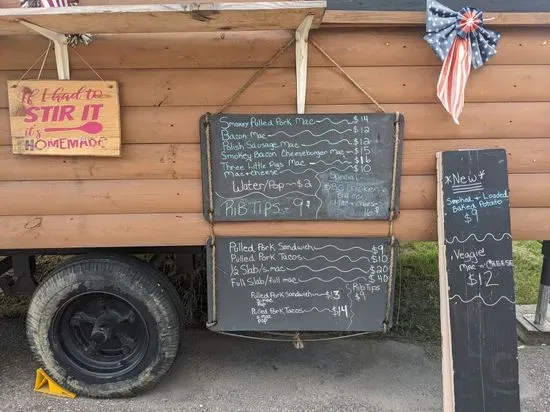 If I had to
STIR IT
it's
HOMEMADE
Smokey Pulled Pork Mac $14
Bacon Mac $12
Polish Sausage Mac $12
Smokey Bacon Cheeseburger Mac $15
Three Little Pigs Mac $16
Mac+cheese $10
Water/Pop $2
Rib Tips 9$
Special
BBQ Chicken
Bacon
Mac+cheese
16
Pulled Pork Sandwich $9
Pulled Pork Tacos $10
1/2 Slab/s.mac $20
Full Slab/full mac $40
Pulled Pork Sandwich $13
s.mac
Pop
Pulled Pork Tacos $14
s.mac
Pop
Rib Tips
$9
*New*
Smoked + Loaded
Baked Potato
$9
Veggie
Mac n CHEESE
$12